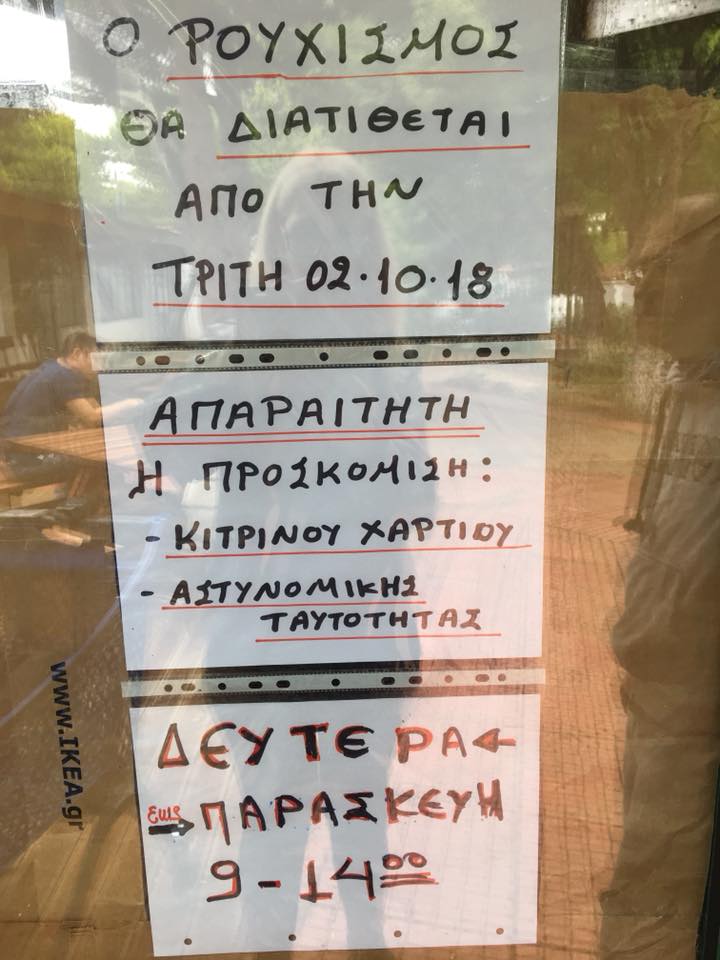 Ο ΡΟΥΧΙΣΜΟΣ
ΘΑ ΔΙΑΤΙΘΕΤΑΙ
ΑΠΟ ΤΗΝ
ΤΡΙΤΗ 02.10.18
ΑΠΑΡΑΙΤΗΤΗ
Η ΠΡΟΣΚΟΜΙΣΗ:
- ΚΙΤΡΙΝΟΥ ΧΑΡΤΙΟΥ
- ΑΣΤΥΝΟΜΙΚΗΣ
ΤΑΥΤΟΤΗΤΑΣ
ΔΕΥΤΕΡΑ ←
έως → ΠΑΡΑΣΚΕΥΗ
9 - 14 00
www.IKEA.gr